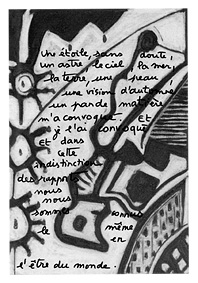 Une étoile sans doute,
un astre le ciel la mer,
la terre, une peau
une vision d'automne
un pan de matière
m'a convoqué et
je l'ai convoqué
et dans
cette
indistinction
des rapports
nous
nous
sommes connus
le même
en
l'être du monde.